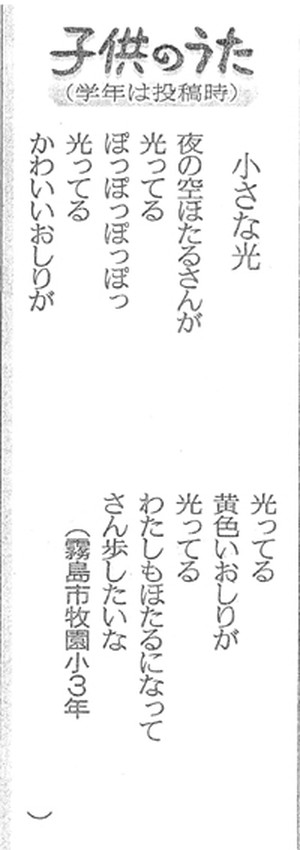 子供のうた
(学年は投稿時)
小さな光
夜の空ほたるさんが
光ってる
ぽっぽっぽっぽっ
光ってる
かわいいおしりが
光ってる
黄色いおしりが
光ってる
わたしもほたるになって
さん歩したいな
(霧島市牧園小3年
)